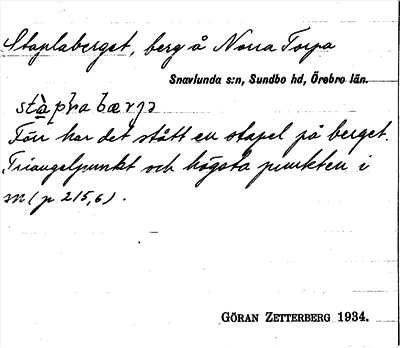 Staplaberget, berg å Norra Torpa
Snavlunda s:n, Sundbo hd, Örebro län.
Förr har det stått en stapel på berget.
Triangelpunkt och högsta punkten i
m (p 215,6).
GÖRAN ZETTERBERG 1934.